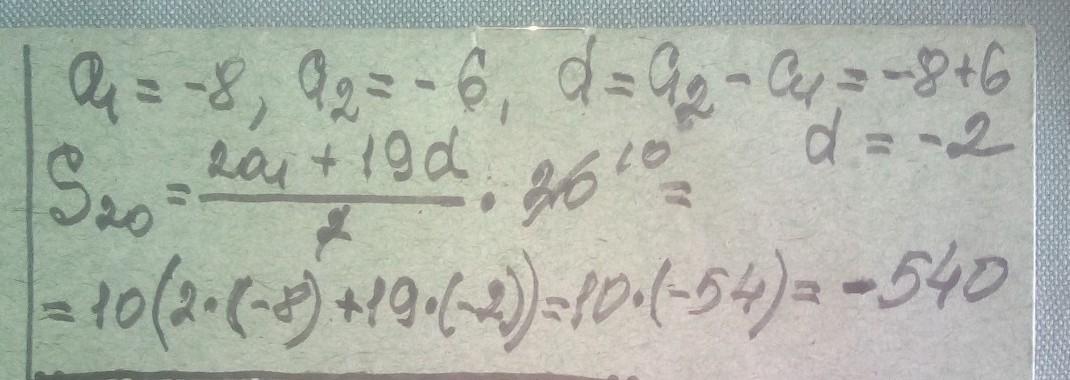 a₁ = -8, a₂ = -6, d = a₂ - a₁ = -8+6
d = -2
S₂₀ = (2a₁ + 19d)/2 · 20 10 =
= 10(2·(-8) + 19·(-2)) = 10·(-54) = -540